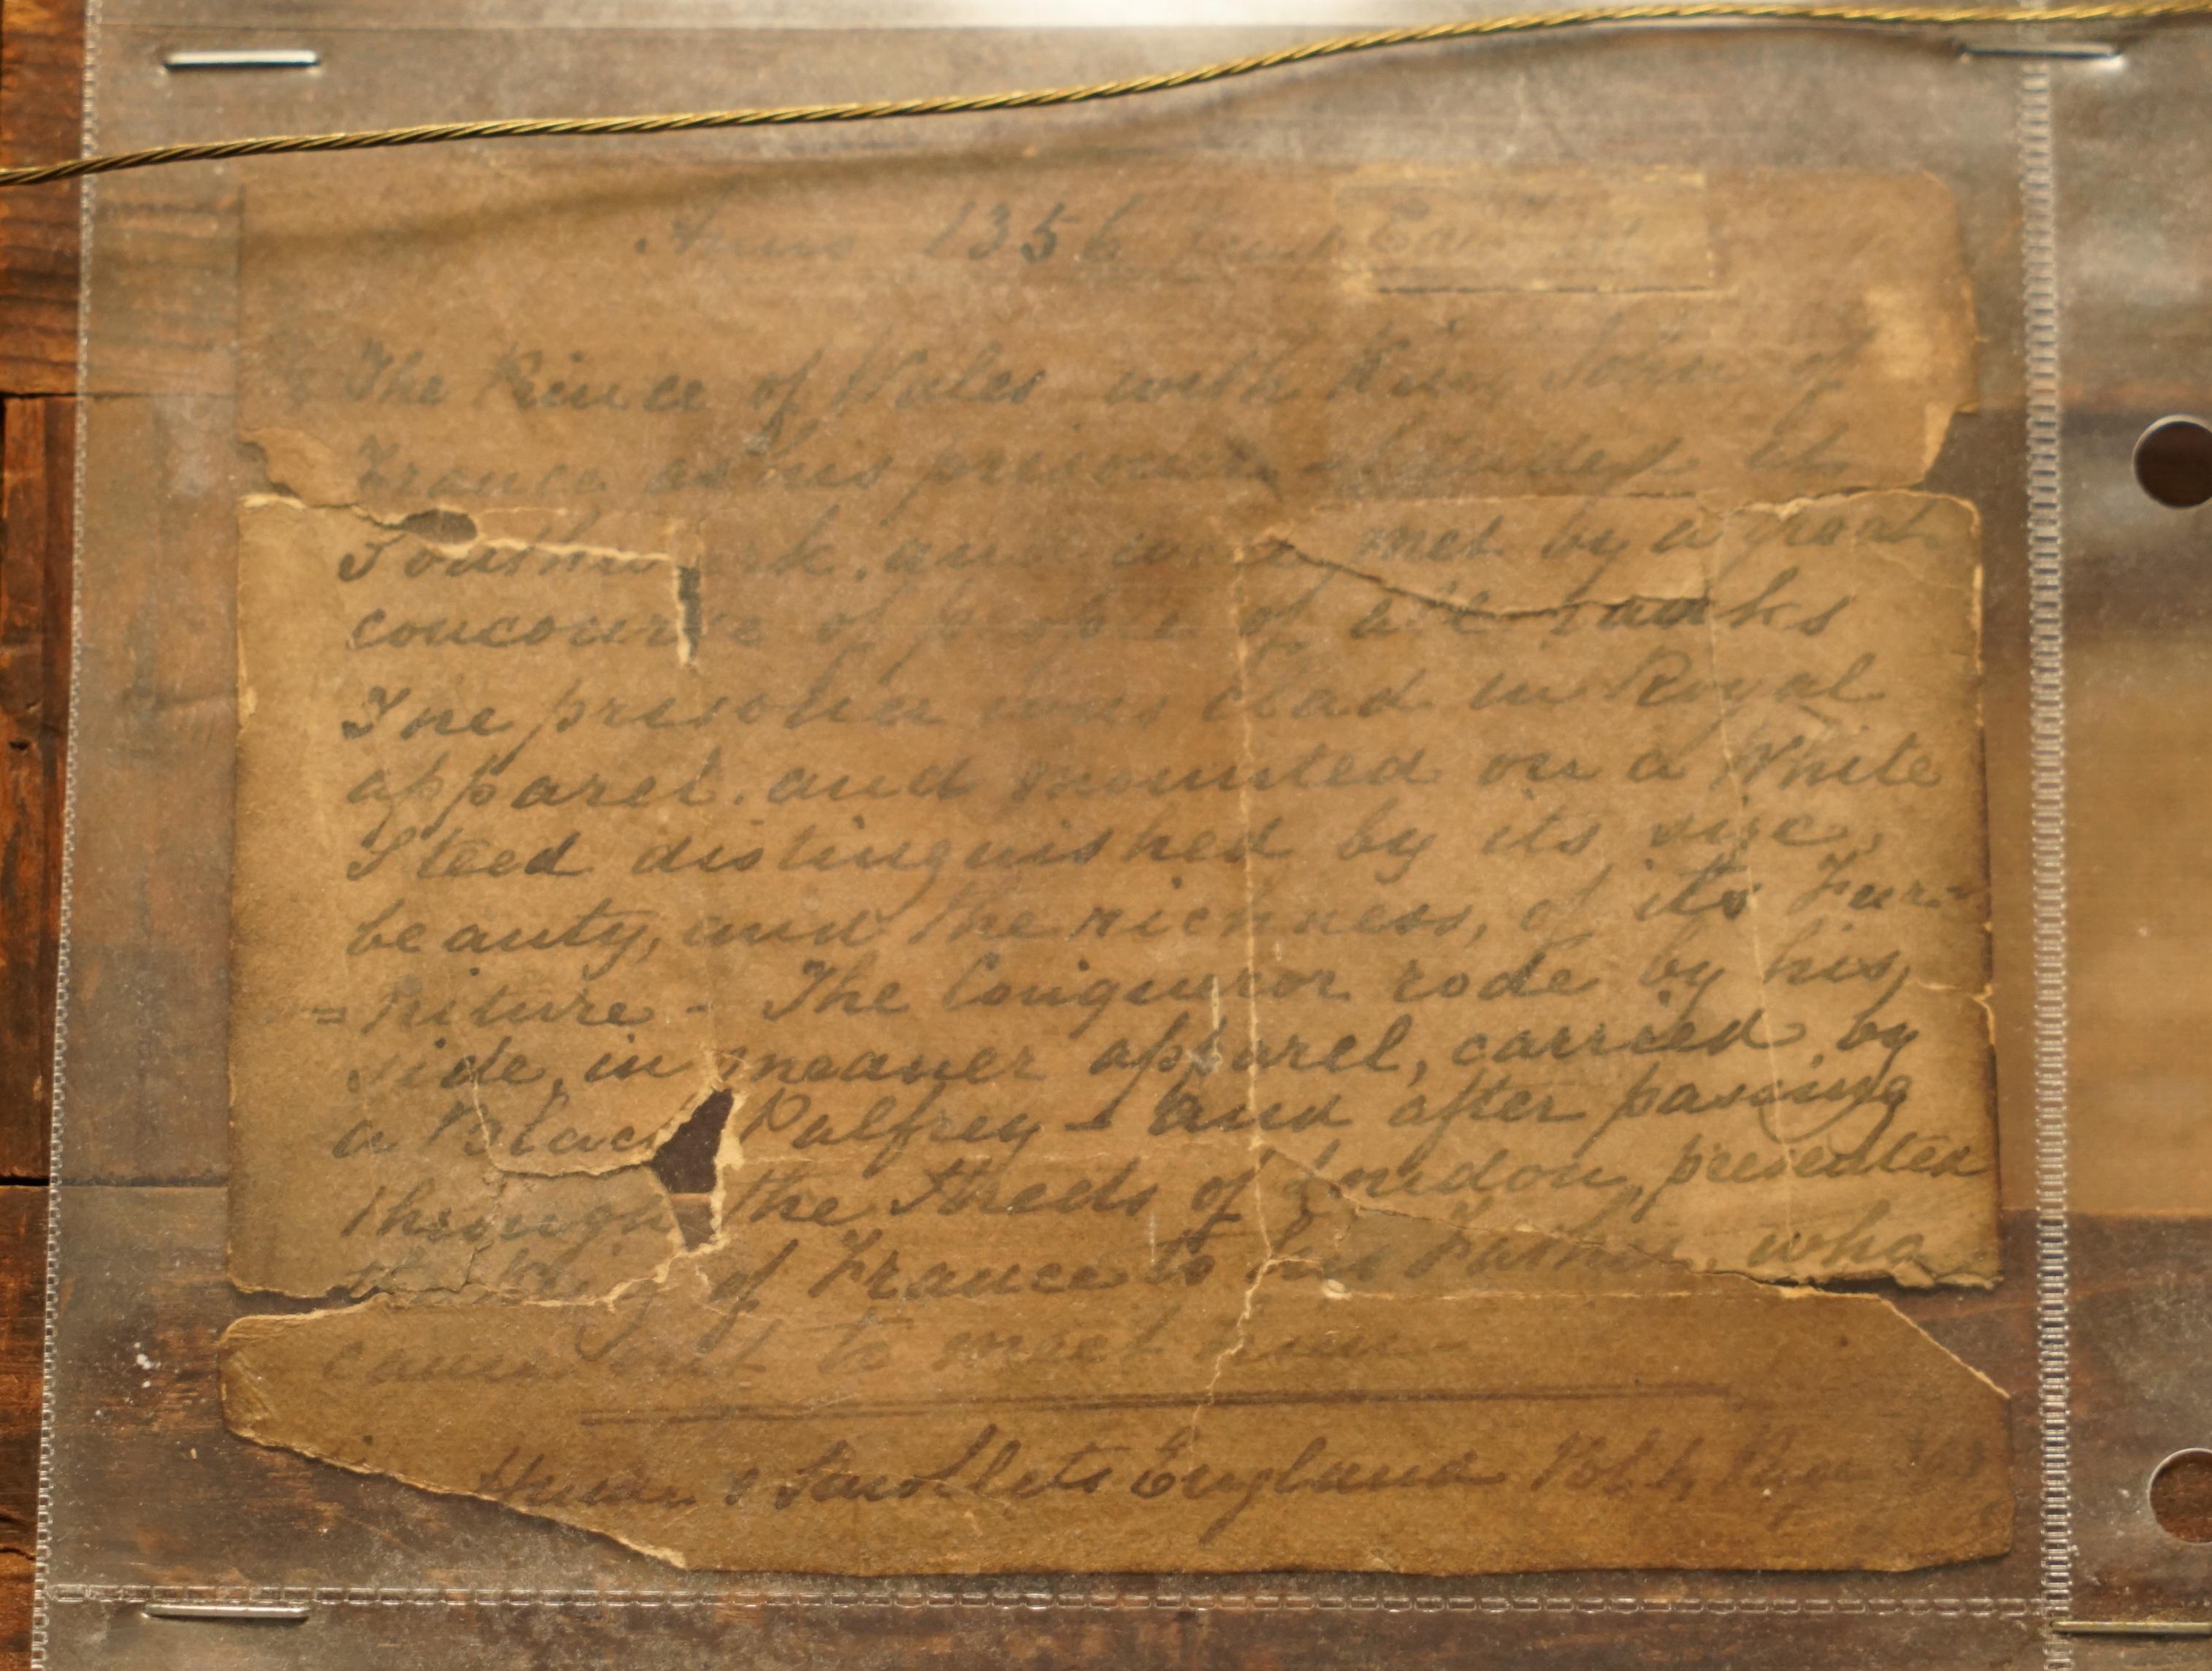 Anno 1356
The Prince of Wales with King John of
France as his prisoner landed at
Southwark, and was met by a great
concourse of people of all ranks
The prisoner was clad in Royal
apparel, and mounted on a White
Steed distinguished by its size,
beauty, and the richness, of its Fur=
=niture - The Conqueror rode by his
side, in meaner apparel, carried by
a Black Palfrey - And after passing
through the Streets of London, presented
the King of France to his Father, who
came to meet him -
Hume & Smollets England Vol